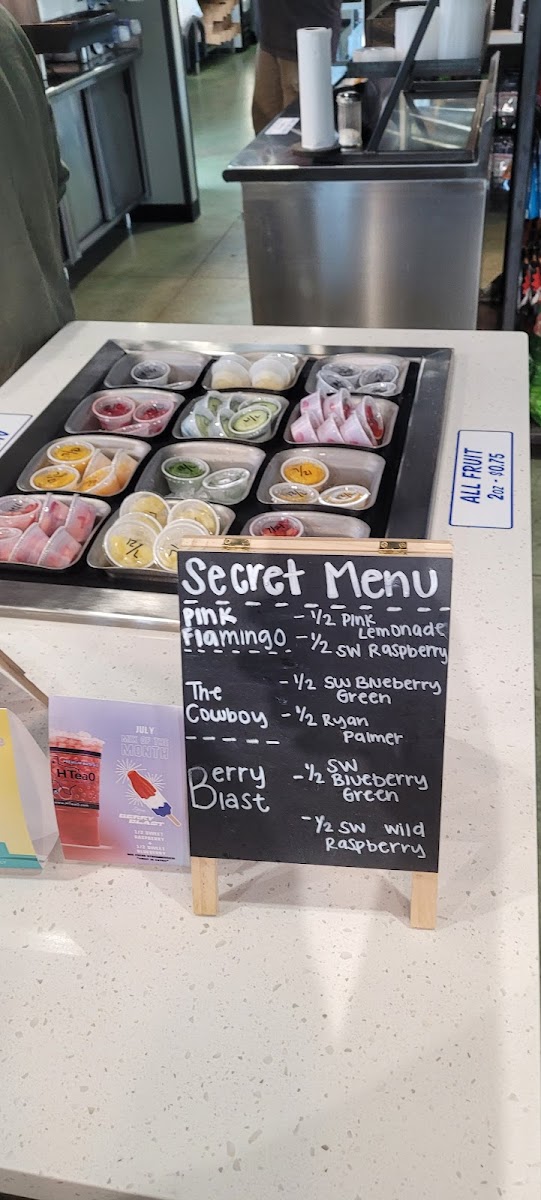 ALL FRUIT
2oz - $0.75
Secret Menu
Pink
Flamingo
- 1/2 Pink
Lemonade
- 1/2 SW Raspberry
The
Cowboy
- 1/2 SW Blueberry
Green
- 1/2 Ryan
Palmer
Berry
Blast
- 1/2 SW
Blueberry
Green
- 1/2 SW Wild
Raspberry
JULY
MIX OF THE
MONTH
HTeaO
BERRY
BLAST
1/2 SWEET
RASPBERRY
+
1/2 SWEET
BLUEBERRY